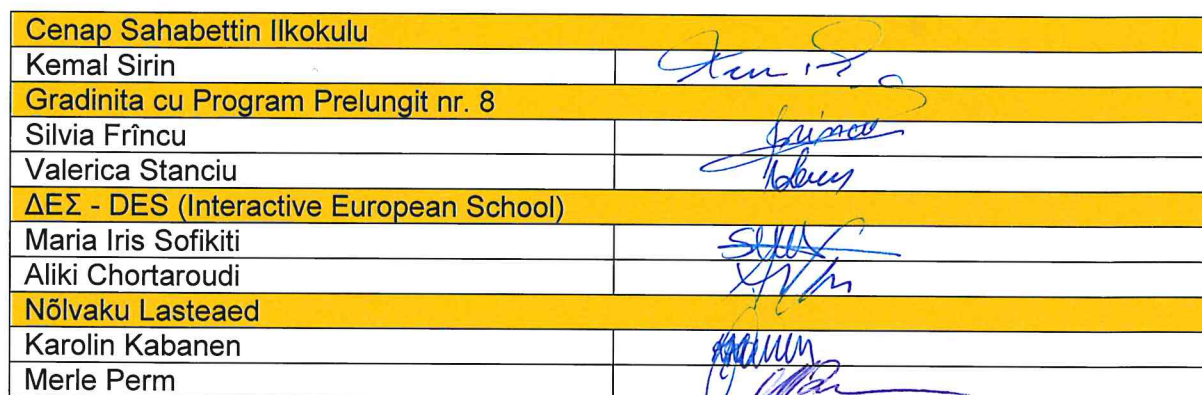 Cenap Sahabettin Ilkokulu
Kemal Sirin
Gradinita cu Program Prelungit nr. 8
Silvia Frîncu
Valerica Stanciu
ΔΕΣ - DES (Interactive European School)
Maria Iris Sofikiti
Aliki Chortaroudi
Nõlvaku Lasteaed
Karolin Kabanen
Merle Perm